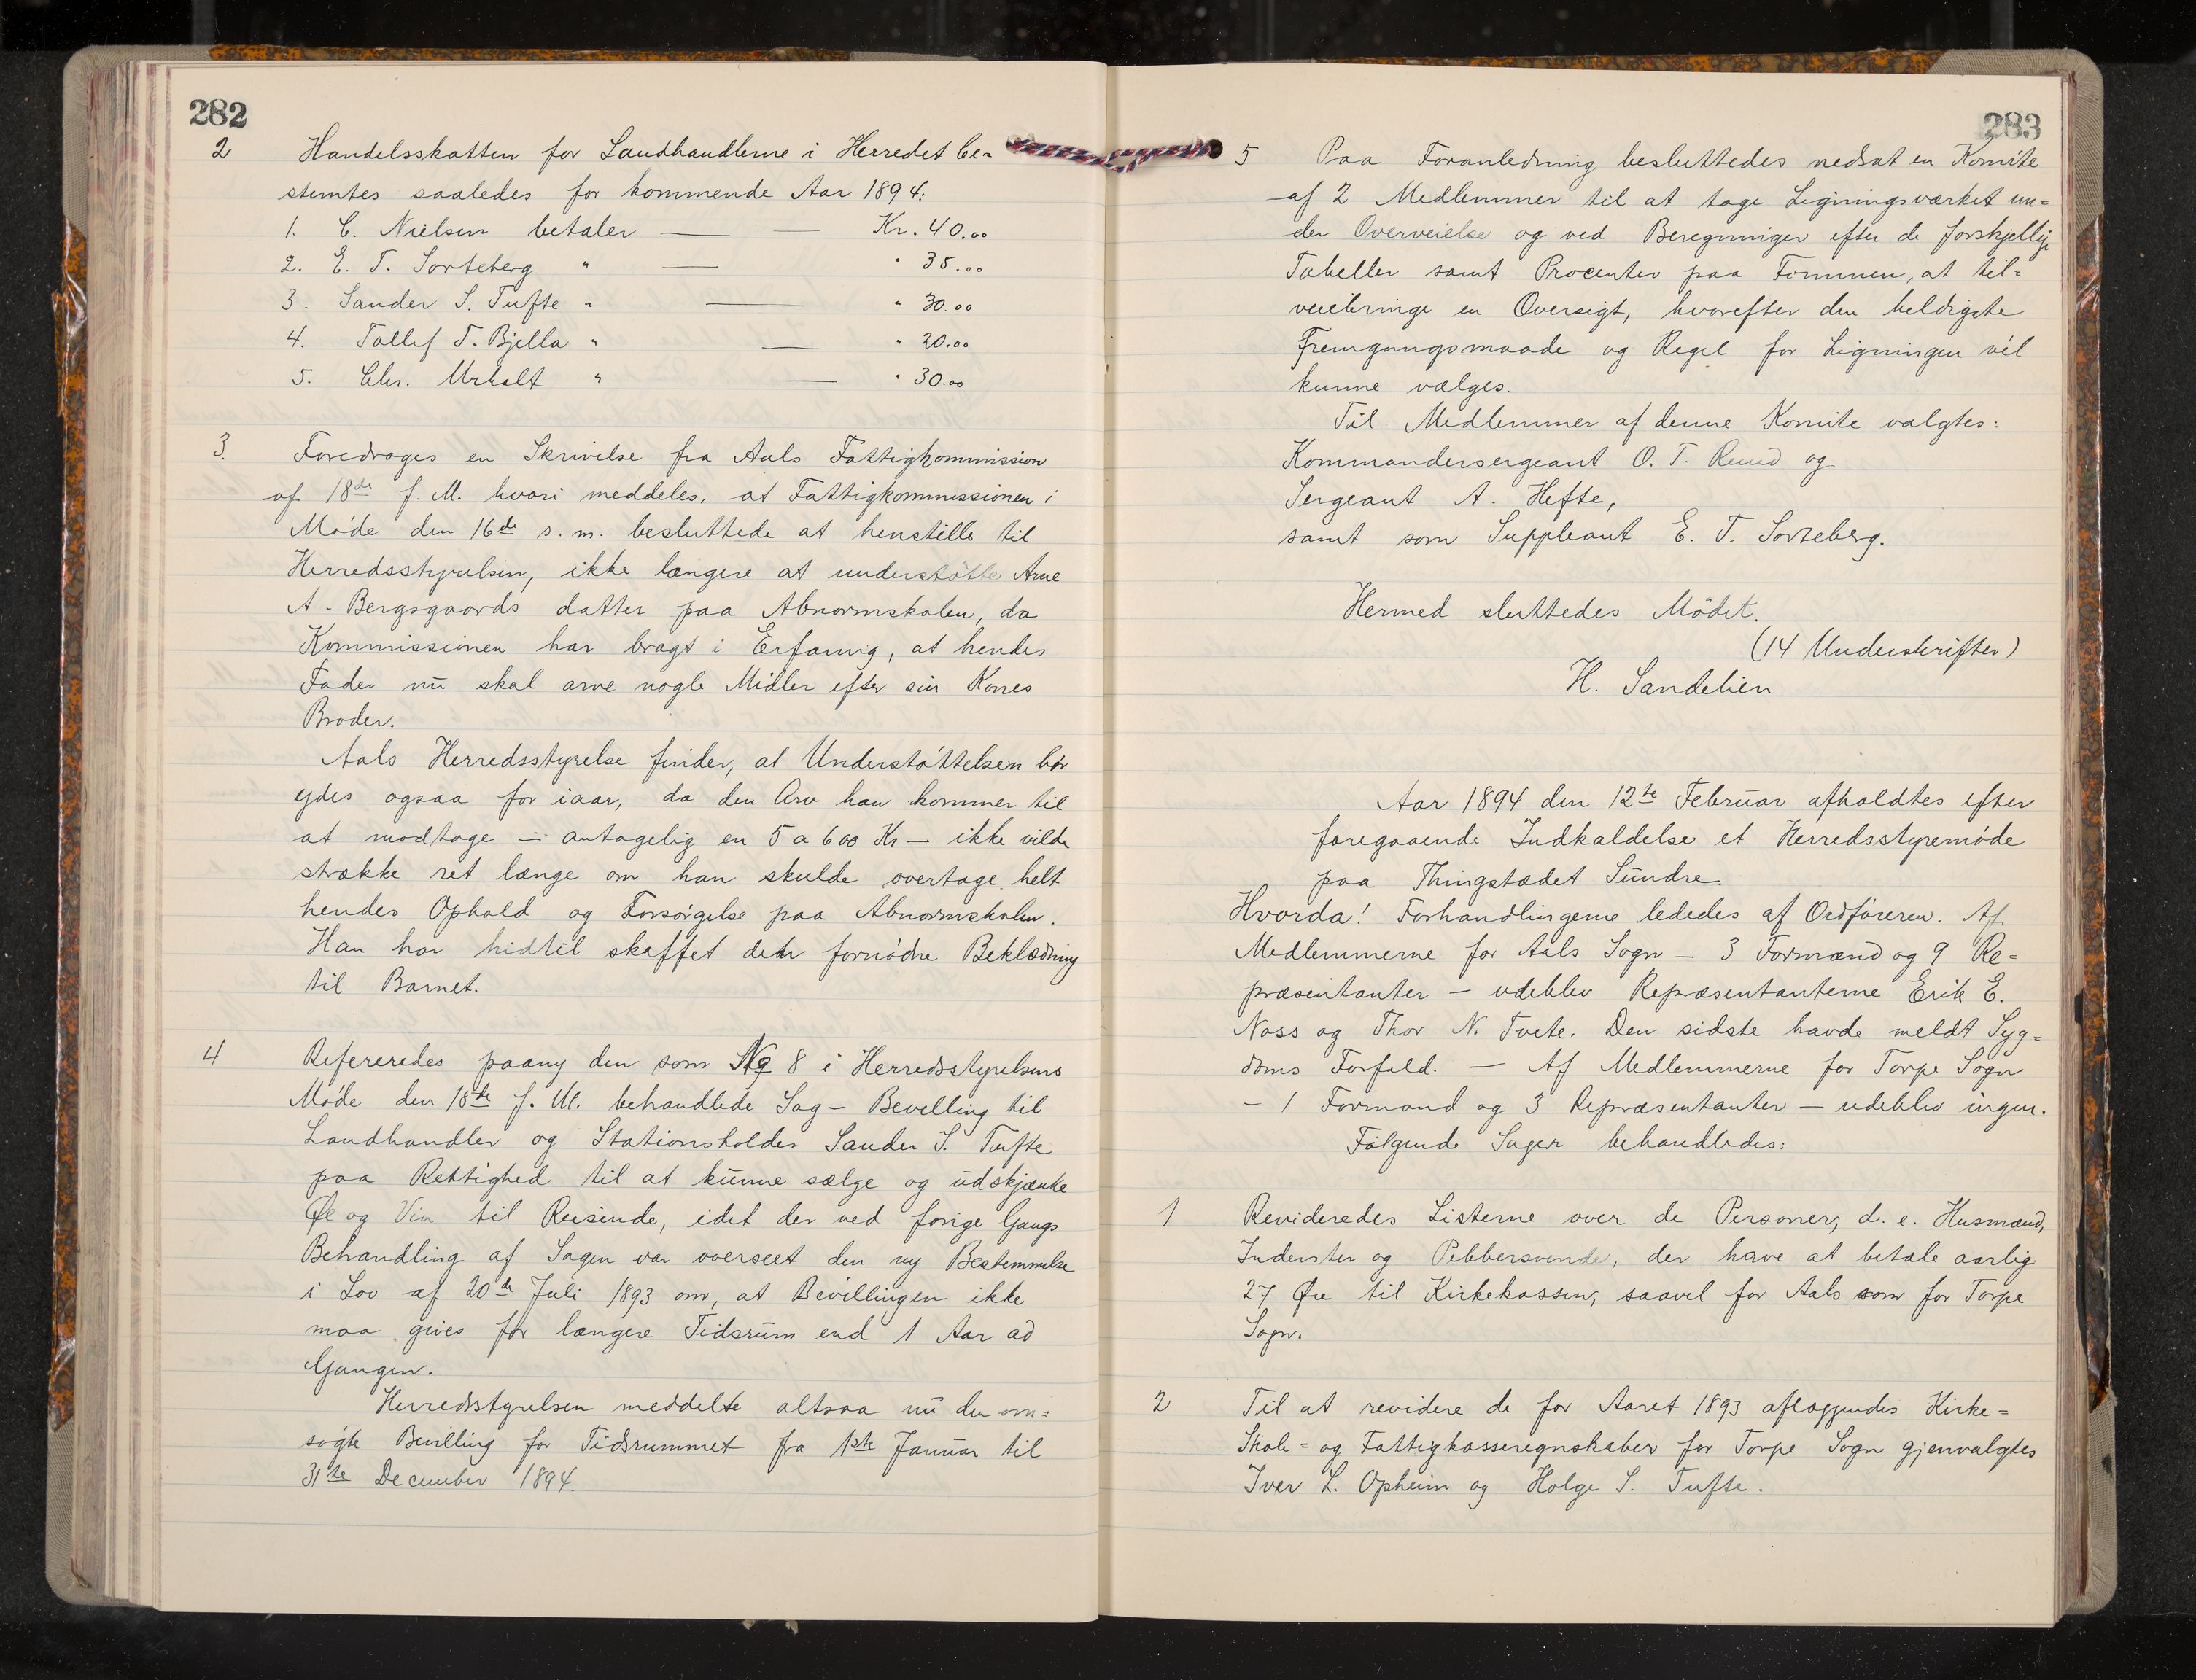 282
2 Handelsskatten for Landhandlerne i Herredet be=
stemtes saaledes for kommende Aar 1894:
1. C. Nielsen betaler — — Kr. 40.00
2. E. T. Sorteberg " — " 35.00
3. Sander S. Tufte " — " 30.00
4. Tollef T. Bjella " — " 20.00
5. Chr. " — " 30.00
3. Foredroges en Skrivelse fra Aals Fattigkommission
af 18de f. M. hvori meddeles, at Fattigkommissionen i
Møde den 16de s. m. besluttede at henstille til
Herredsstyrelsen, ikke længere at understøtte Arne
A. Bergsgaards datter paa Abnormskolen, da
Kommissionen har bragt i Erfaring, at hendes
Fader nu skal arve nogle Midler efter sin Kones
Broder.
Aals Herredsstyrelse finder, at Understøttelsen bør
ydes ogsaa for iaar, da den Arv han kommer til
at modtage — antagelig en 5 a 600 Kr — ikke vilde
strække ret længe om han skulde overtage helt
hendes Ophold og Forsørgelse paa Abnormskolen.
Han har hidtil skaffet den fornødne Beklædning
til Barnet.
4 Refereredes paany den som No 8 i Herredsstyrelsens
Møde den 18de f. M. behandlede Sag — Bevilling til
Landhandler og Stationsholder Sander S. Tufte
paa Rettighed til at kunne sælge og udskjænke
Øl og Vin til Reisende, idet der ved forige Gangs
Behandling af Sagen var overseet den ny Bestemmelse
i Lov af 20de Juli 1893 om, at Bevillingen ikke
maa gives for længere Tidsrum end 1 Aar ad
Gangen.
Herredsstyrelsen meddelte altsaa nu den om=
søgte Bevilling for Tidsrummet fra 1ste Januar til
31te December 1894.
283
5 Paa Foranledning besluttedes nedsat en Komite
af 2 Medlemmer til at tage Ligningsværket un=
der Overveielse og ved Beregninger efter de forskjellige
Tabeller samt Procenter paa Formuen, at til=
veiebringe en Oversigt, hvorefter den heldigste
Fremgangsmaade og Regel for Ligningen vil
kunne vælges.
Til Medlemmer af denne Komite valgtes:
Kommandersergeant O. T. Ruud og
Sergeant A. Hefte,
samt som Suppleant E. T. Sorteberg.
Hermed sluttedes Mødet.
(14 Underskrifter)
H. Sandelien
Aar 1894 den 12te Februar afholdtes efter
foregaaende Indkaldelse et Herredsstyremøde
paa Thingstedet Sundre.
Hvorda! Forhandlingerne lededes af Ordføreren. Af
Medlemmerne for Aals Sogn — 3 Formænd og 9 Re=
præsentanter — udeblev Repræsentanterne Erik E.
Noss og Thor N. Tvete. Den sidste havde meldt Syg=
doms Forfald. — Af Medlemmerne for Torpe Sogn
— 1 Formand og 3 Repræsentanter — udeblev ingen.
Følgende Sager behandledes:
1 Revideredes Listerne over de Personer, d. e. Husmænd,
Inderster og Pebbersvende, der have at betale aarlig
27 Øre til Kirkekassen, saavel for Aals som for Torpe
Sogn.
2 Til at revidere de for Aaret 1893 aflæggendes Kirke=
Skole= og Fattigkasseregnskaber for Torpe Sogn gjenvalgtes
Iver L. Opheim og Holge S. Tufte.